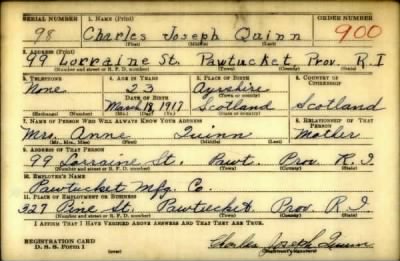 SERIAL NUMBER 1. NAME (Print) ORDER NUMBER
98 Charles Joseph Quinn 900
(First) (Middle) (Last)
2. ADDRESS (Print)
99 Lorraine St. Pawtucket Prov. R.I
(Number and street or R. F. D. number) (Town) (County) (State)
3. TELEPHONE 4. AGE IN YEARS 5. PLACE OF BIRTH 6. COUNTRY OF CITIZENSHIP
None 23 Ayrshire
DATE OF BIRTH (Town or county)
March 18, 1917 Scotland Scotland
(Exchange) (Number) (Mo.) (Day) (Yr.) (State or country)
7. NAME OF PERSON WHO WILL ALWAYS KNOW YOUR ADDRESS 8. RELATIONSHIP OF THAT PERSON
Mrs. Anne Quinn Mother
(Mr., Mrs., Miss) (First) (Middle) (Last)
9. ADDRESS OF THAT PERSON
99 Lorraine St. Pawt. Prov. R.I
(Number and street or R. F. D. number) (Town) (County) (State)
10. EMPLOYER'S NAME
Pawtucket Mfg. Co.
11. PLACE OF EMPLOYMENT OR BUSINESS
327 Pine St. Pawtucket Prov. R.I
(Number and street or R. F. D. number) (Town) (County) (State)
I AFFIRM THAT I HAVE VERIFIED ABOVE ANSWERS AND THAT THEY ARE TRUE.
REGISTRATION CARD
D. S. S. Form 1 (over) Charles Joseph Quinn